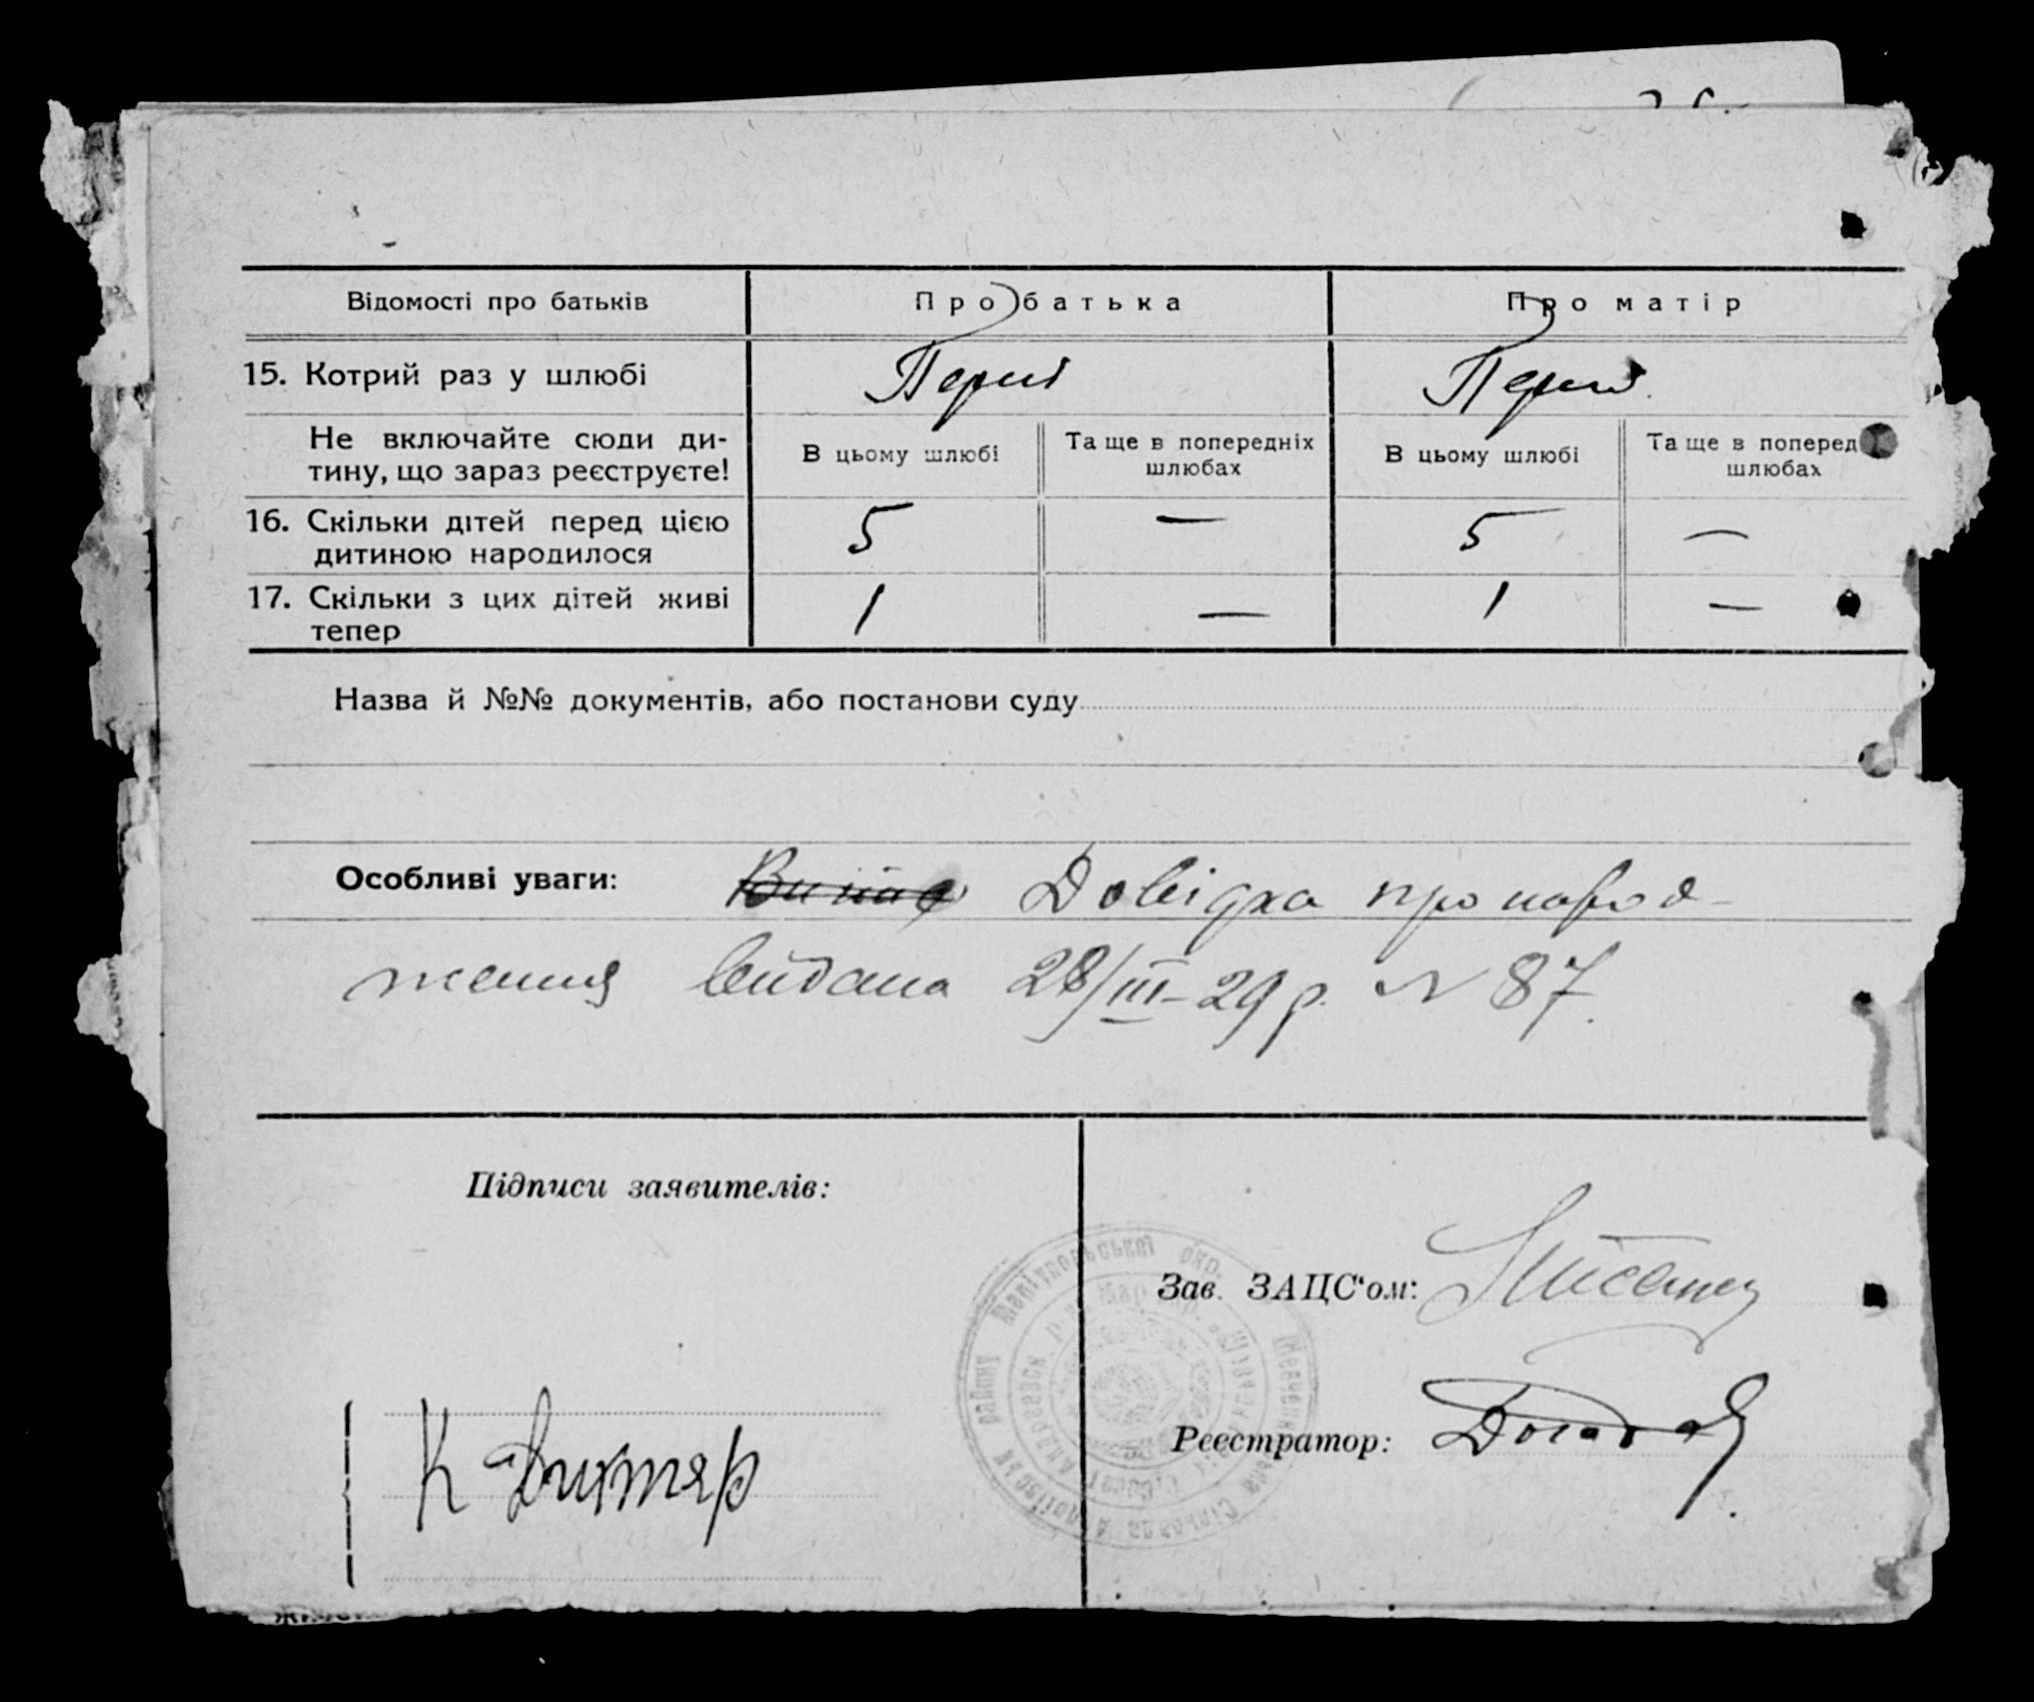 Відомості про батьків Про батька Про матір
15. Котрий раз у шлюбі Перш. Перш.
Не включайте сюди ди-
тину, що зараз реєструєте! В цьому шлюбі Та ще в попередніх шлюбах В цьому шлюбі Та ще в поперед шлюбах
16. Скільки дітей перед цією
дитиною народилося 5 — 5 —
17. Скільки з цих дітей живі
тепер 1 — 1 —
Назва й №№ документів, або постанови суду
Особливі уваги: Довідка про народ-
ження видана 28/III-29 р. N 87.
Підписи заявителів:
Зав. ЗАЦС'ом:
Реєстратор: